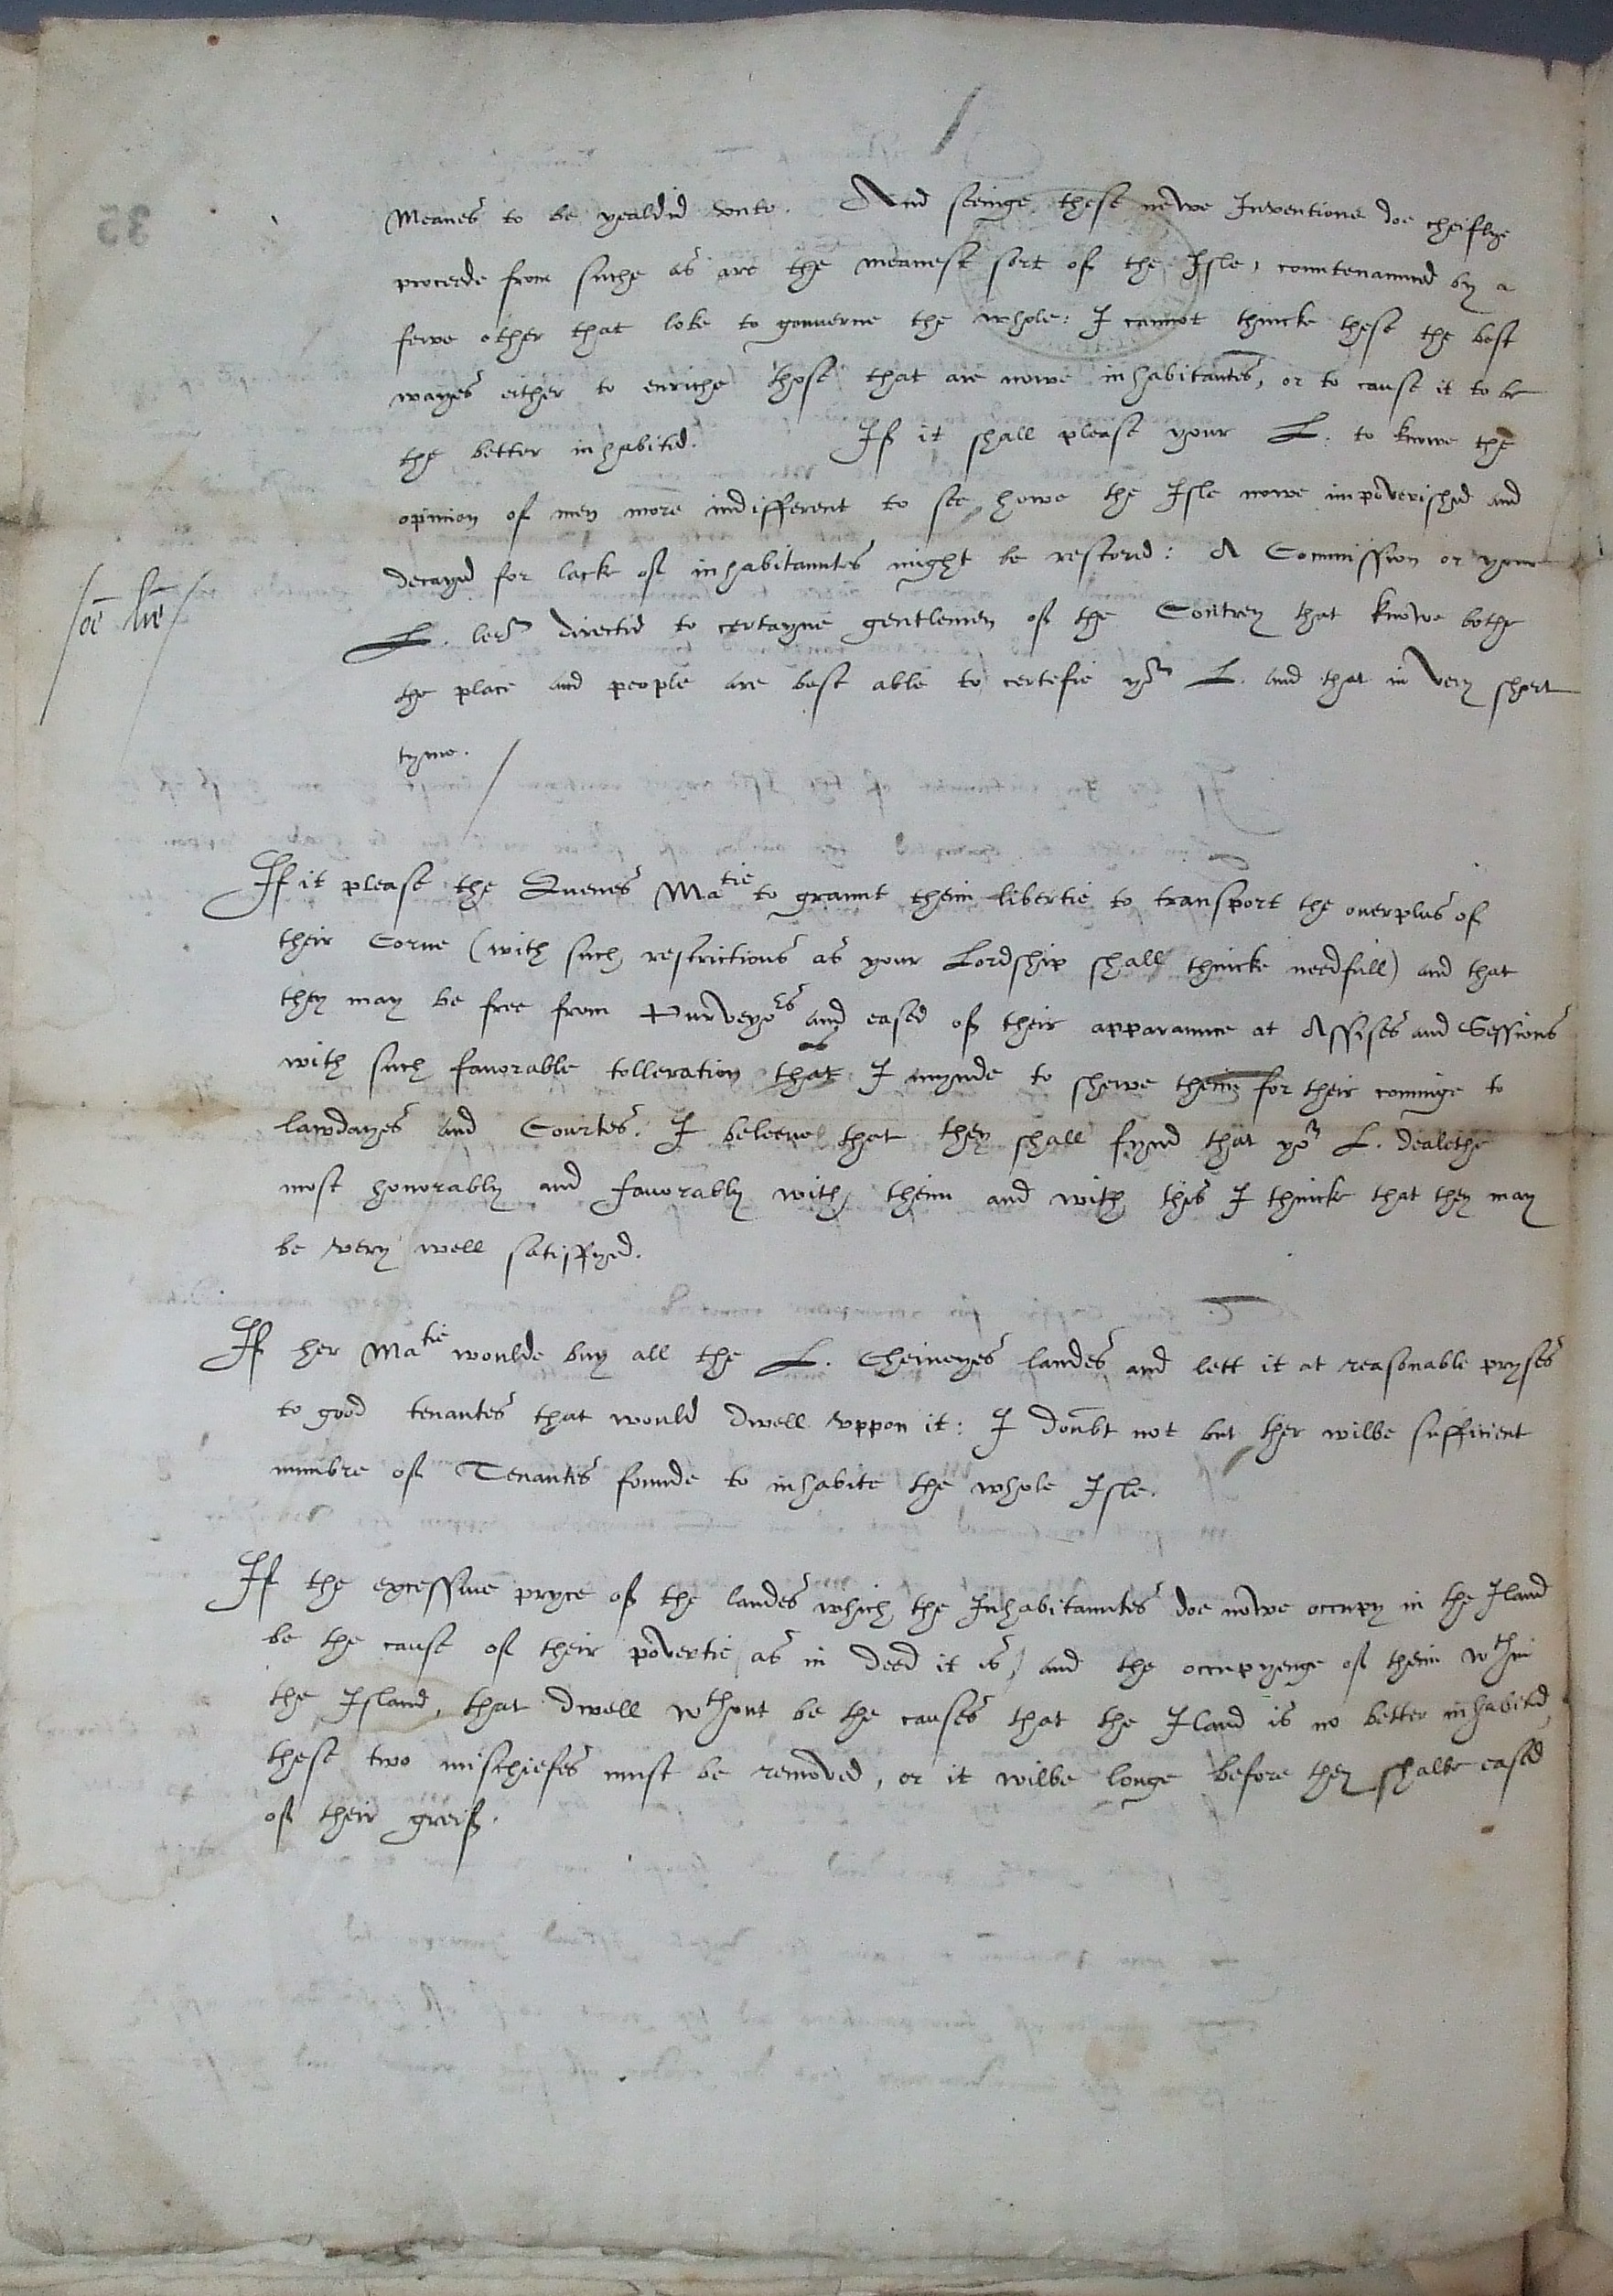 Meanes to be yealdid vnto. And seeinge these newe Inventions doe cheiflye
proceede from suche as are the meanest sort of the Isle, countenaunced by a
fewe other that loke to gouuerne the whole: I cannot thincke these the best
wayes either to enriche those that are nowe inhabitantes, or to cause it to be
the better inhabitid. If it shall please your L. to knowe the
opinion of men more indifferent to see howe the Isle nowe impoverished and
decayed for lack of inhabitauntes might be restorid: A Commission or your
L. lers directid to certayne gentlemen of the Contrey that knowe bothe
the place and people are best able to certefie yor L. and that in very short
tyme.
If it please the Quenes Matie to graunt theim libertie to transport the ouerplus of
their Corne (with such restrictions as your Lordship shall thincke needfull) and that
they may be free from Purveyors and eased of their apparaunce at Assises and Sessions
as
with such fauorable tolleration that I mynde to shewe theim for their cominge to
lawdayes and Courtes. I beleeue that they shall fynd that yor L. dealethe
most honorably and fauorably with theim and with this I thincke that they may
be very well satisfyed.
If her Matie woulde buy all the L. Cheineyes landes and lett it at reasonable pryses
to good tenantes that would dwell vppon it: I doubt not but ther wilbe sufficient
numbre of Tenantes founde to inhabite the whole Isle.
If the excessiue pryce of the landes which the Inhabitauntes doe nowe occupy in the Iland
be the cause of their povertie, as in deed it is, and the occupyenge of theim wthin
the Island, that dwell wthout be the causes that the Iland is no better inhabited,
these two mischiefes must be removed, or it wilbe longe before they shalbe eased
of their greif.
35